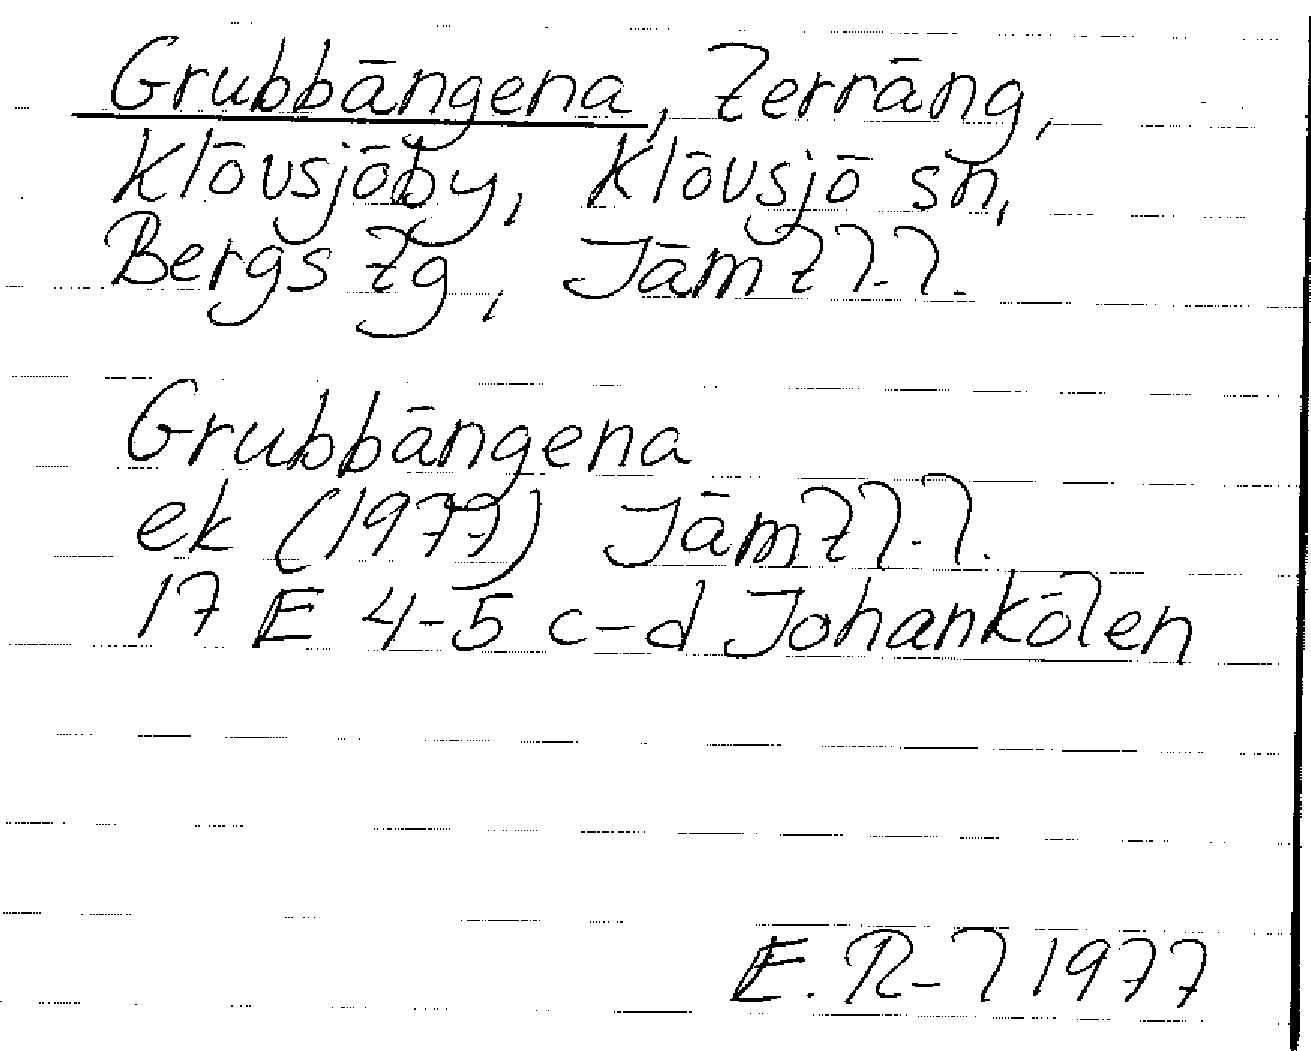 Grubbängena, terräng,
Klövsjöby, Klövsjö sn,
Bergs tg, Jämtl.l.
Grubbängena
ek (1977) Jämtl.l.
17 E 4-5 c-d Johankölen
E. R-l 1977